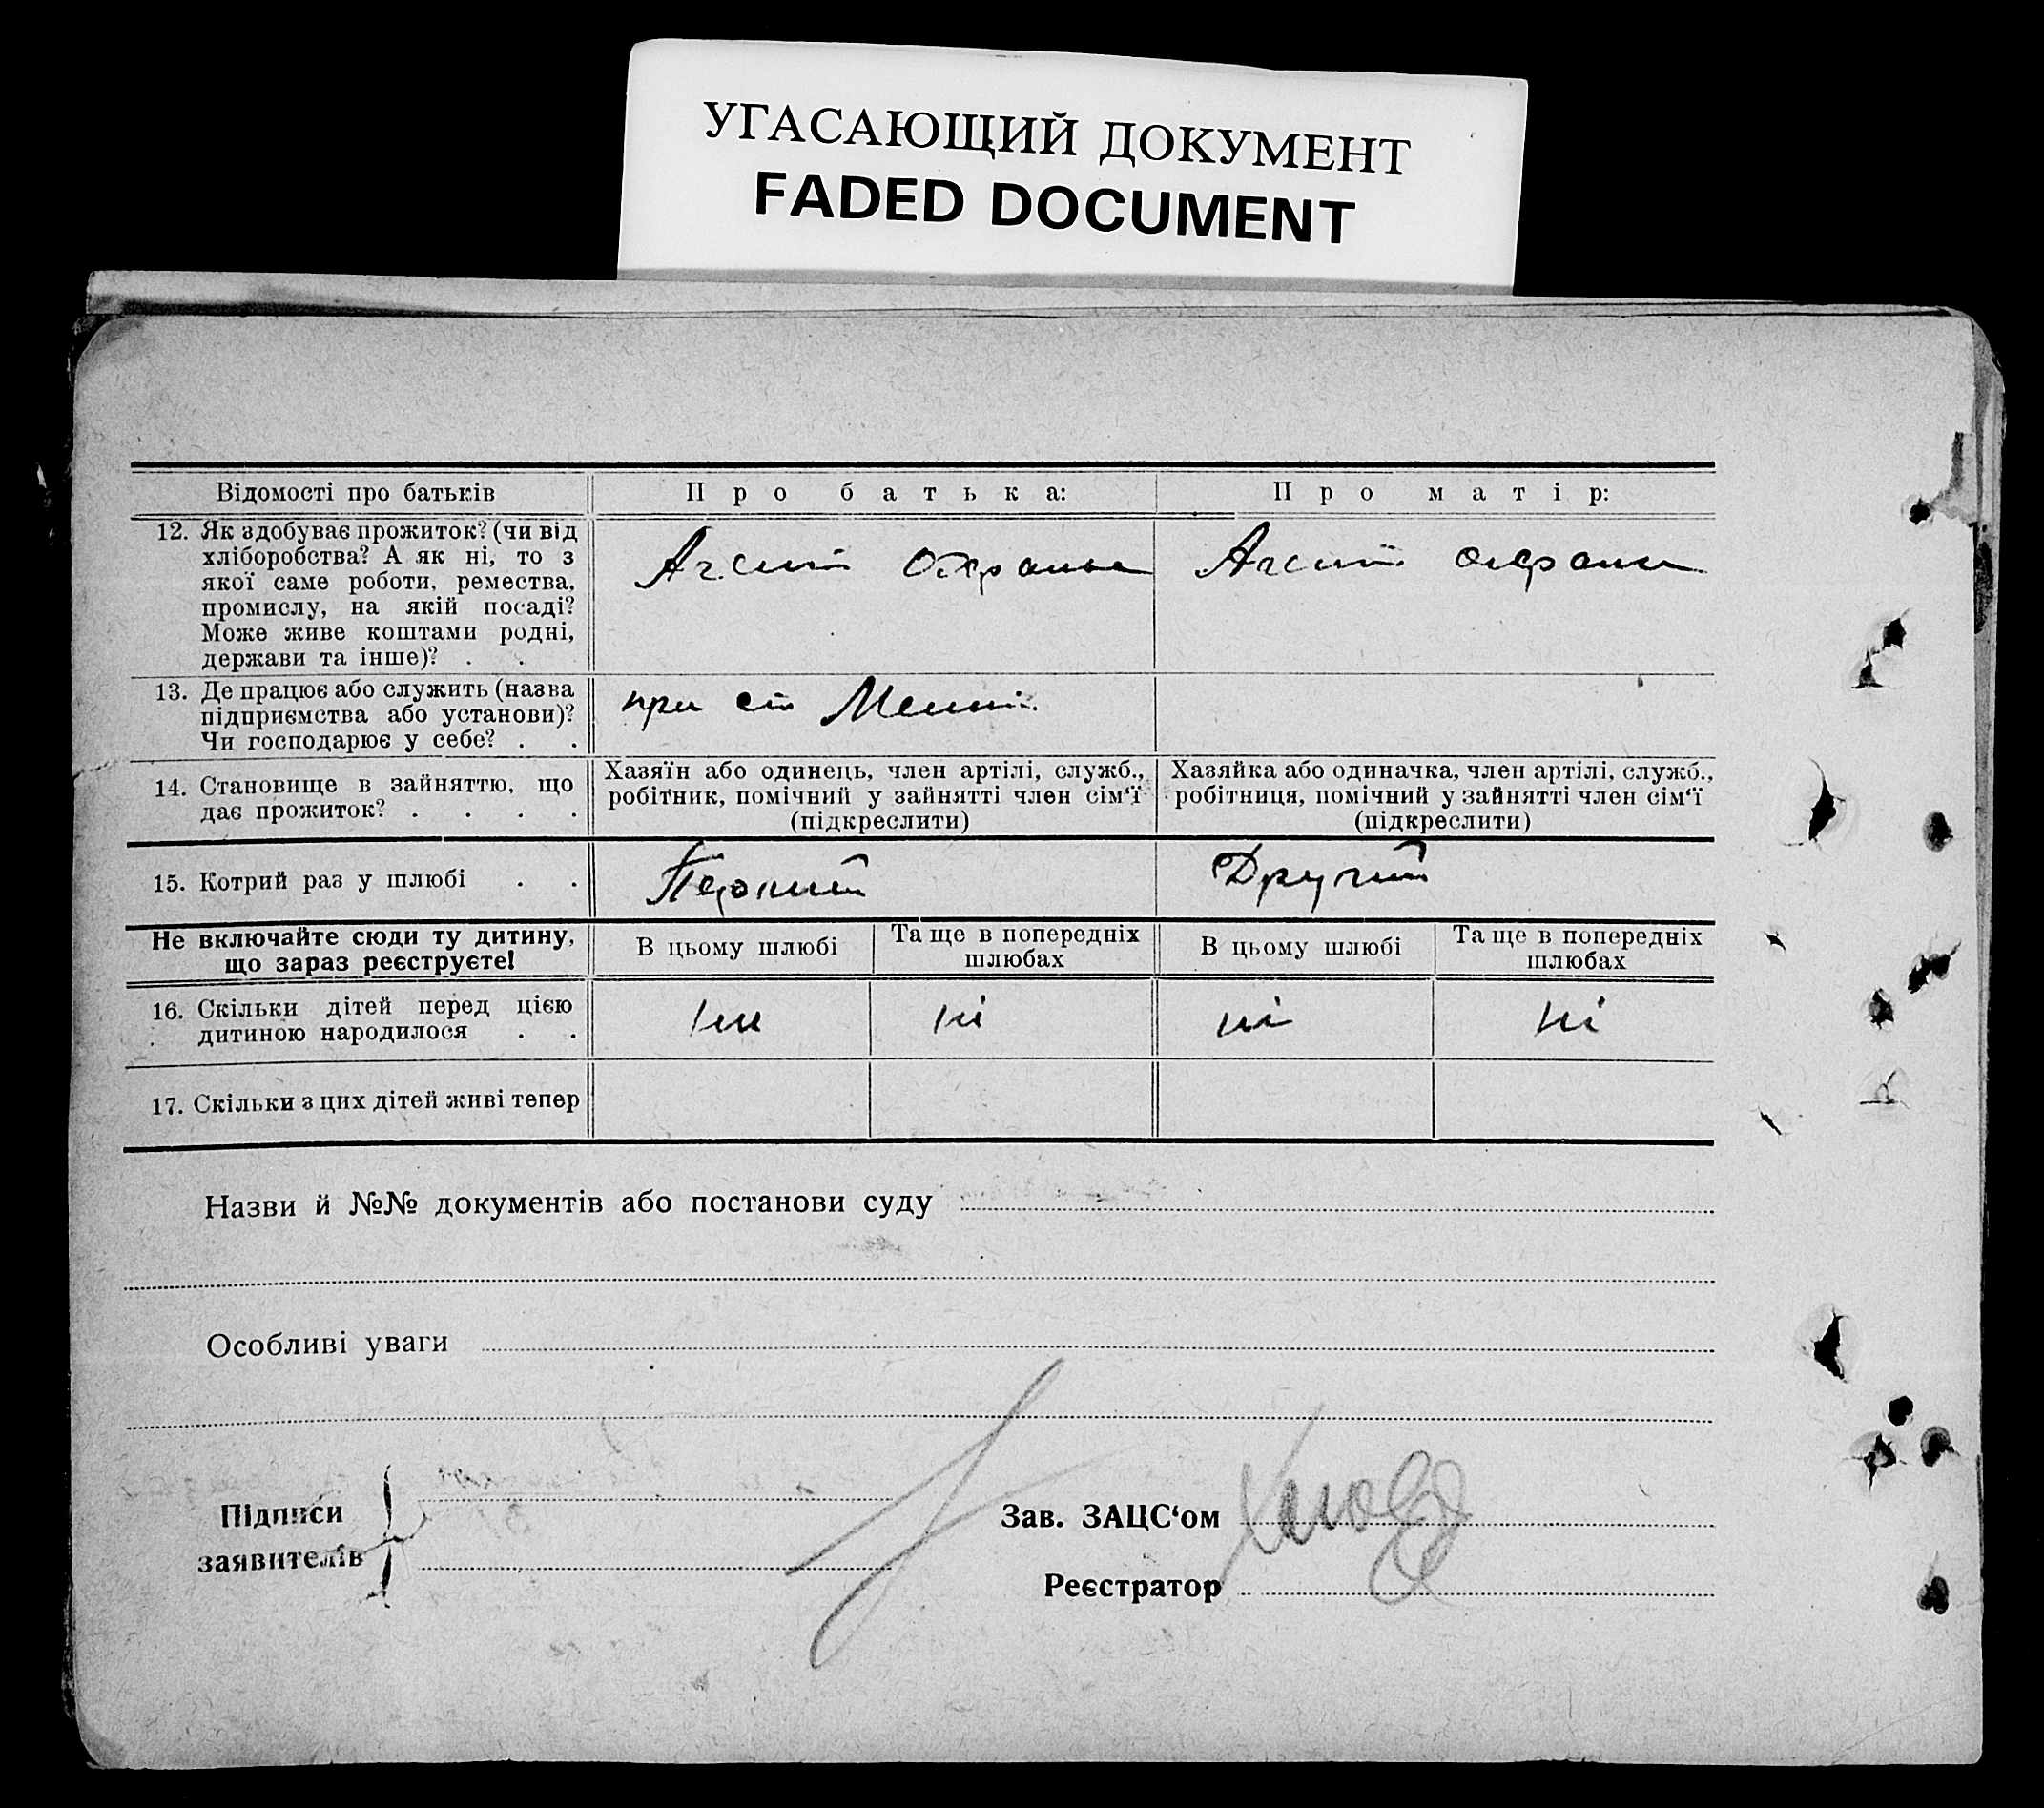 УГАСАЮЩИЙ ДОКУМЕНТ
FADED DOCUMENT
Відомості про батьків
Про батька:
Про матір:
12. Як здобуває прожиток? (чи від
хліборобства? А як ні, то з
якої саме роботи, ремества,
промислу, на якій посаді?
Може живе коштами родні,
держави та інше)? . .
Агент охраны
Агент охраны
13. Де працює або служить (назва
підприємства або установи)?
Чи господарює у себе? . .
при ст
14. Становище в зайняттю, що
дає прожиток? . . . .
Хазяїн або одинець, член артілі, служб.,
робітник, помічний у зайнятті член сім‘ї
(підкреслити)
Хазяйка або одиначка, член артілі, служб.,
робітниця, помічний у зайнятті член сім‘ї
(підкреслити)
15. Котрий раз у шлюбі . .
Перший
Другий
Не включайте сюди ту дитину,
що зараз реєструєте!
В цьому шлюбі
Та ще в попередніх
шлюбах
В цьому шлюбі
Та ще в попередніх
шлюбах
16. Скільки дітей перед цією
дитиною народилося . .
ні
ні
ні
ні
17. Скільки з цих дітей живі тепер
Назви й №№ документів або постанови суду
Особливі уваги
Підписи
заявителів
Зав. ЗАЦС‘ом
Реєстратор